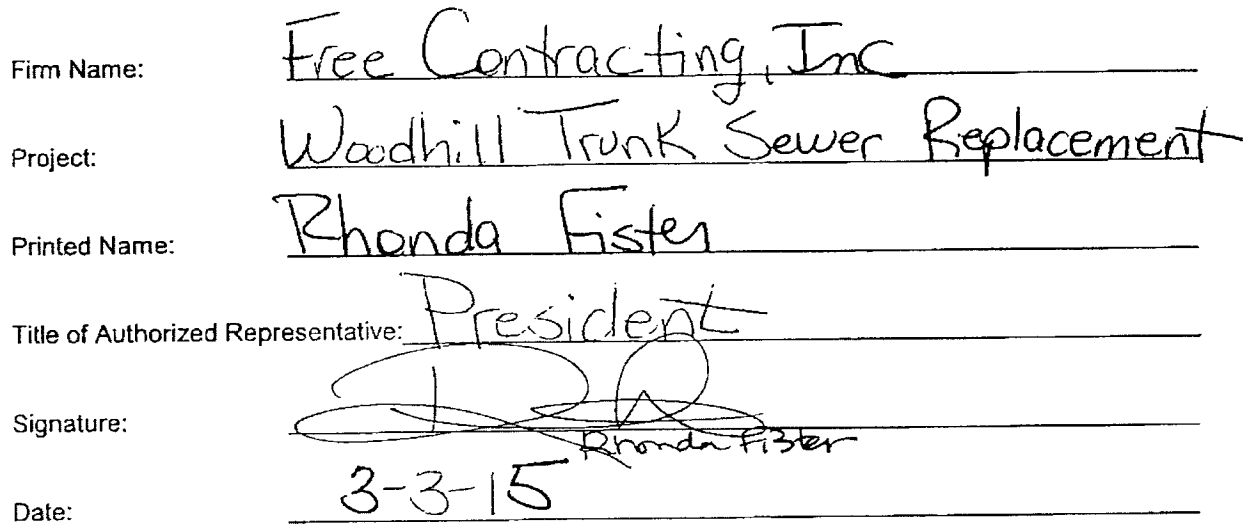 Firm Name: Free Contracting, Inc
Project: Woodhill Trunk Sewer Replacement
Printed Name: Rhonda Fister
Title of Authorized Representative: President
Signature:
Rhonda Fister
Date: 3-3-15